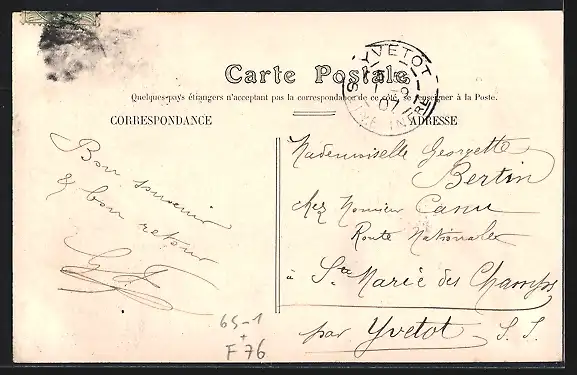 Carte Postale
Quelques pays étrangers n'acceptent pas la correspondance de ce côté, se renseigner à la Poste.
CORRESPONDANCE
ADRESSE
YVETOT
SEINE INFRE
Bon souvenir
& bon retour
Mademoiselle Georgette
Bertin
chez Monsieur Canu
Route Nationale
à Ste Marie des Champs
par Yvetot S. I.
65-1
+
F76